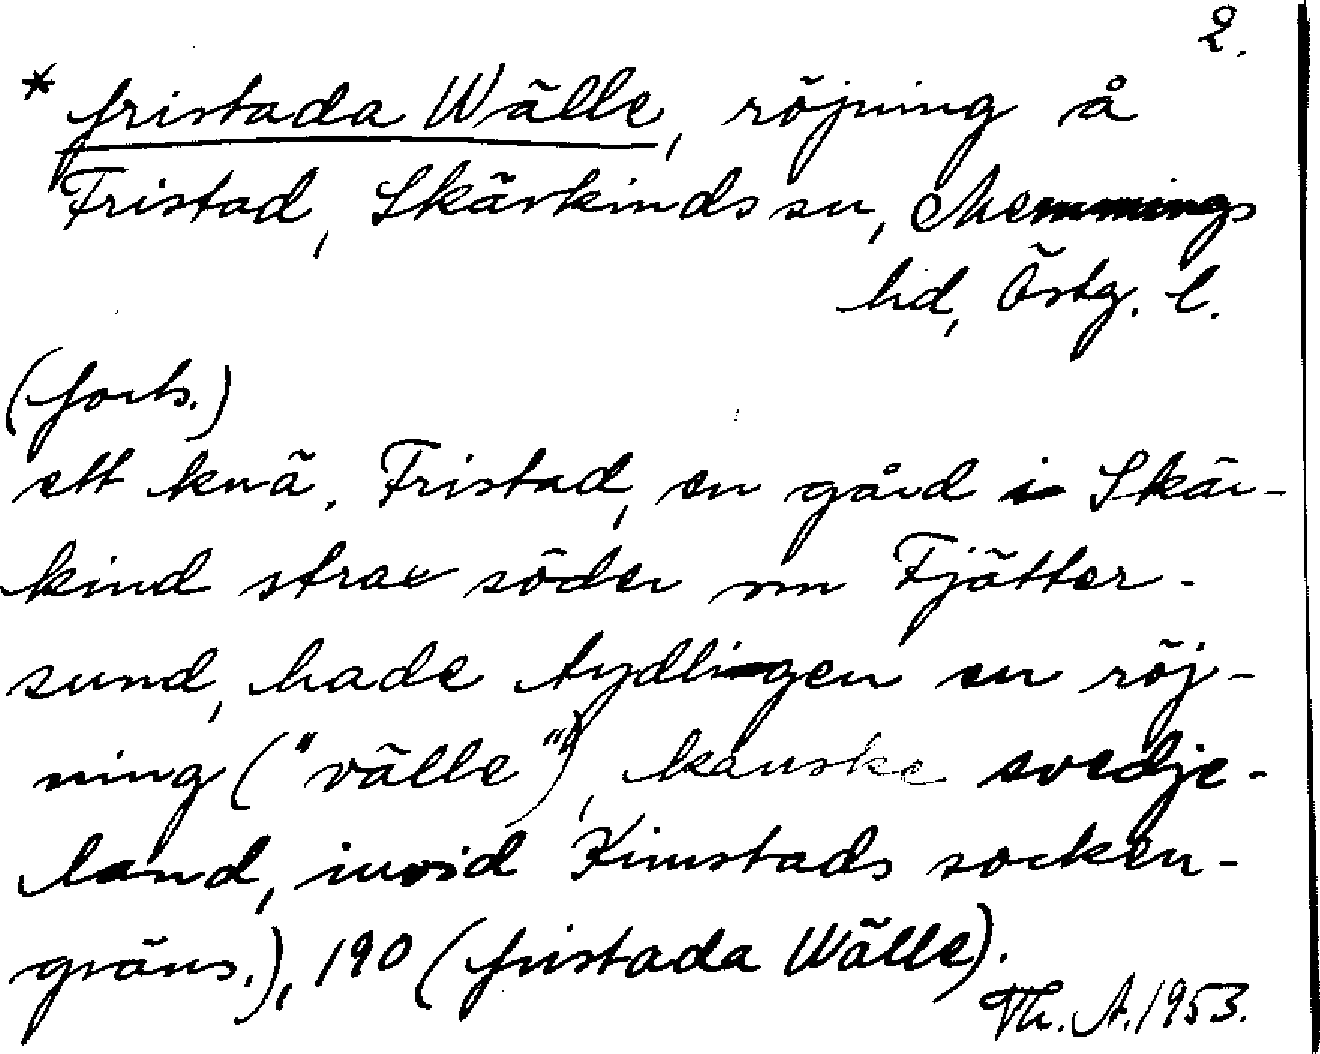 2.
* fristada Wälle, röjning å
Fristad, Skärkinds sn, Memmings
hd, Östg. l.
(forts.)
ett knä. Fristad, en gård i Skär-
kind strax söder om Fjätter-
sund, hade tydligen en röj-
ning ("välle"), kanske svedje-
land, invid Kimstads socken-
gräns.), 190 (fristada Wälle).
Th. A. 1953.